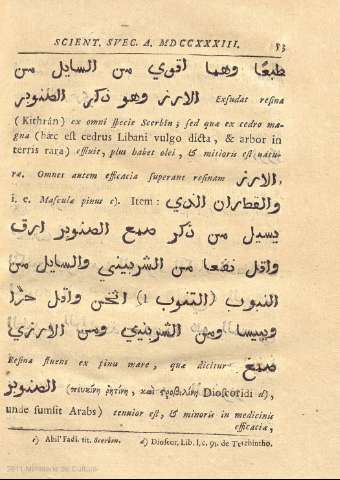 SCIENT. SVEC. A. MDCCXXXIII. 83
طبعًا وهما اقوي من السايل من
الارز وهو ذكر الصنوبر Exsudat resina
(Kithrán) ex omni specie Scerbin; sed quæ ex cedro ma-
gna (hæc est cedrus Libani vulgo dicta, & arbor in
terris rara) effluit, plus habet olei, & mitioris est natu-
ræ. Omnes autem efficacia superant resinam الارز
i. e. Mascula pinus c). Item: والقطران الذي
يسيل من ذكر صمغ الصنوبر ارق
واقل نفعا من الشربيني والسايل من
التنوب (1 التنوب) اثخن واقل حرًا
ويبسا ومن الشربيني ومن الارزي
Resina fluens ex pinu mare, quæ dicitur صمغ
الصنوبر (πευκίνη ῥητίνη, καὶ Dioscoridi d),
unde sumsit Arabs) tenuior est, & minoris in medicinis
efficaciæ,
c) Abil' Fadi. tit. Scerbin. d) Dioscor. Lib. I, c. 91. de Terebintho.
2011 Ministerio de Cultura